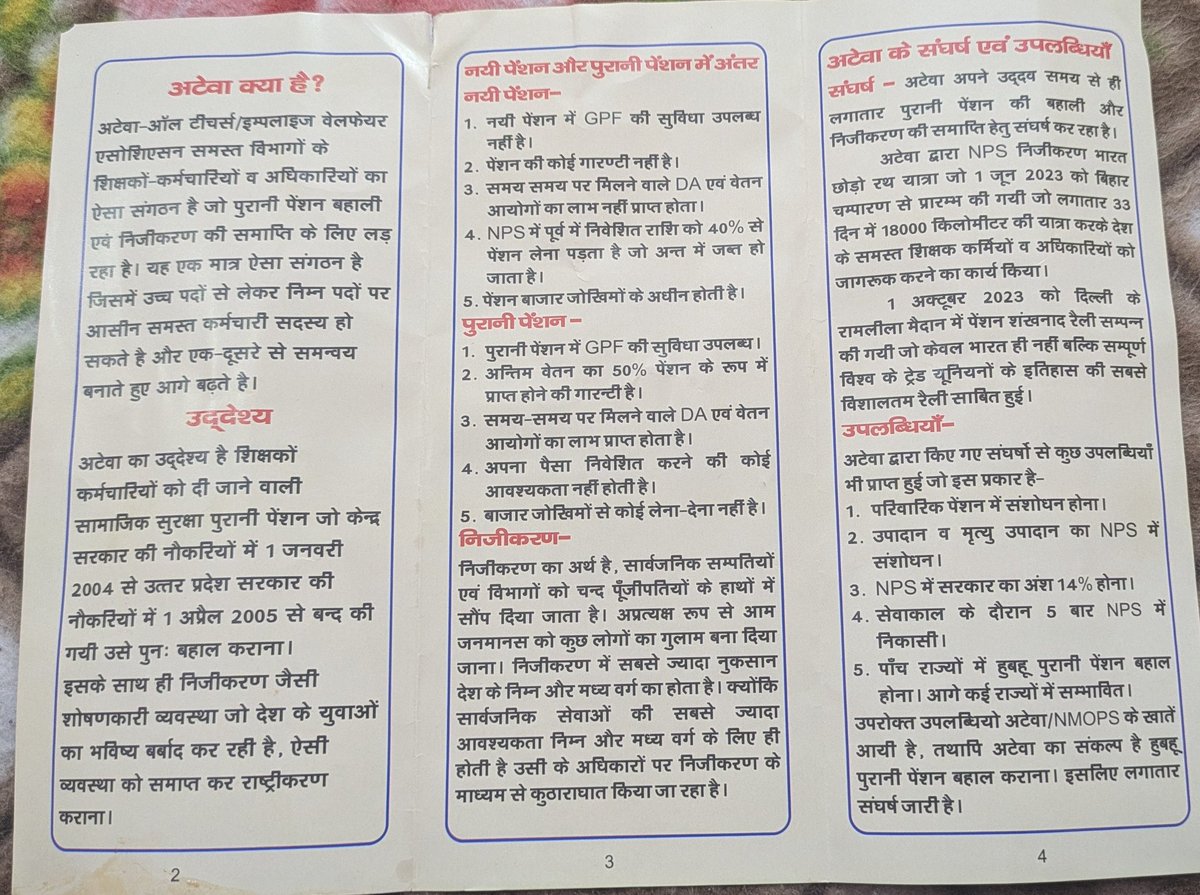 अटेवा क्या है?
अटेवा-ऑल टीचर्स/इम्पलाइज वेलफेयर
एसोशिएसन समस्त विभागों के
शिक्षकों-कर्मचारियों व अधिकारियों का
ऐसा संगठन है जो पुरानी पेंशन बहाली
एवं निजीकरण की समाप्ति के लिए लड़
रहा है। यह एक मात्र ऐसा संगठन है
जिसमें उच्च पदों से लेकर निम्न पदों पर
आसीन समस्त कर्मचारी सदस्य हो
सकते है और एक-दूसरे से समन्वय
बनाते हुए आगे बढ़ते है।
उद्देश्य
अटेवा का उद्देश्य है शिक्षकों
कर्मचारियों को दी जाने वाली
सामाजिक सुरक्षा पुरानी पेंशन जो केन्द्र
सरकार की नौकरियों में 1 जनवरी
2004 से उत्तर प्रदेश सरकार की
नौकरियों में 1 अप्रैल 2005 से बन्द की
गयी उसे पुनः बहाल कराना।
इसके साथ ही निजीकरण जैसी
शोषणकारी व्यवस्था जो देश के युवाओं
का भविष्य बर्बाद कर रही है, ऐसी
व्यवस्था को समाप्त कर राष्ट्रीकरण
कराना।
2
नयी पेंशन और पुरानी पेंशन में अंतर
नयी पेंशन-
1. नयी पेंशन में GPF की सुविधा उपलब्ध
नहीं है।
2. पेंशन की कोई गारण्टी नहीं है।
3. समय समय पर मिलने वाले DA एवं वेतन
आयोगों का लाभ नहीं प्राप्त होता।
4. NPS में पूर्व में निवेशित राशि को 40% से
पेंशन लेना पड़ता है जो अन्त में जब्त हो
जाता है।
5. पेंशन बाजार जोखिमों के अधीन होती है।
पुरानी पेंशन -
1. पुरानी पेंशन में GPF की सुविधा उपलब्ध।
2. अन्तिम वेतन का 50% पेंशन के रूप में
प्राप्त होने की गारन्टी है।
3. समय-समय पर मिलने वाले DA एवं वेतन
आयोगों का लाभ प्राप्त होता है।
4. अपना पैसा निवेशित करने की कोई
आवश्यकता नहीं होती है।
5. बाजार जोखिमों से कोई लेना-देना नहीं है।
निजीकरण-
निजीकरण का अर्थ है, सार्वजनिक सम्पतियों
एवं विभागों को चन्द पूँजीपतियों के हाथों में
सौंप दिया जाता है। अप्रत्यक्ष रूप से आम
जनमानस को कुछ लोगों का गुलाम बना दिया
जाना। निजीकरण में सबसे ज्यादा नुकसान
देश के निम्न और मध्य वर्ग का होता है। क्योंकि
सार्वजनिक सेवाओं की सबसे ज्यादा
आवश्यकता निम्न और मध्य वर्ग के लिए ही
होती है उसी के अधिकारों पर निजीकरण के
माध्यम से कुठाराघात किया जा रहा है।
3
अटेवा के संघर्ष एवं उपलब्धियाँ
संघर्ष - अटेवा अपने उद्दव समय से ही
लगातार पुरानी पेंशन की बहाली और
निजीकरण की समाप्ति हेतु संघर्ष कर रहा है।
अटेवा द्वारा NPS निजीकरण भारत
छोड़ो रथ यात्रा जो 1 जून 2023 को बिहार
चम्पारण से प्रारम्भ की गयी जो लगातार 33
दिन में 18000 किलोमीटर की यात्रा करके देश
के समस्त शिक्षक कर्मियों व अधिकारियों को
जागरूक करने का कार्य किया।
1 अक्टूबर 2023 को दिल्ली के
रामलीला मैदान में पेंशन शंखनाद रैली सम्पन्न
की गयी जो केवल भारत ही नहीं बल्कि सम्पूर्ण
विश्व के ट्रेड यूनियनों के इतिहास की सबसे
विशालतम रैली साबित हुई।
उपलब्धियाँ-
अटेवा द्वारा किए गए संघर्षो से कुछ उपलब्धियाँ
भी प्राप्त हुई जो इस प्रकार है-
1. परिवारिक पेंशन में संशोधन होना।
2. उपादान व मृत्यु उपादान का NPS में
संशोधन।
3. NPS में सरकार का अंश 14% होना।
4. सेवाकाल के दौरान 5 बार NPS में
निकासी।
5. पाँच राज्यों में हुबहू पुरानी पेंशन बहाल
होना। आगे कई राज्यों में सम्भावित।
उपरोक्त उपलब्धियो अटेवा/NMOPS के खातें
आयी है, तथापि अटेवा का संकल्प है हुबहू
पुरानी पेंशन बहाल कराना। इसलिए लगातार
संघर्ष जारी है।
4